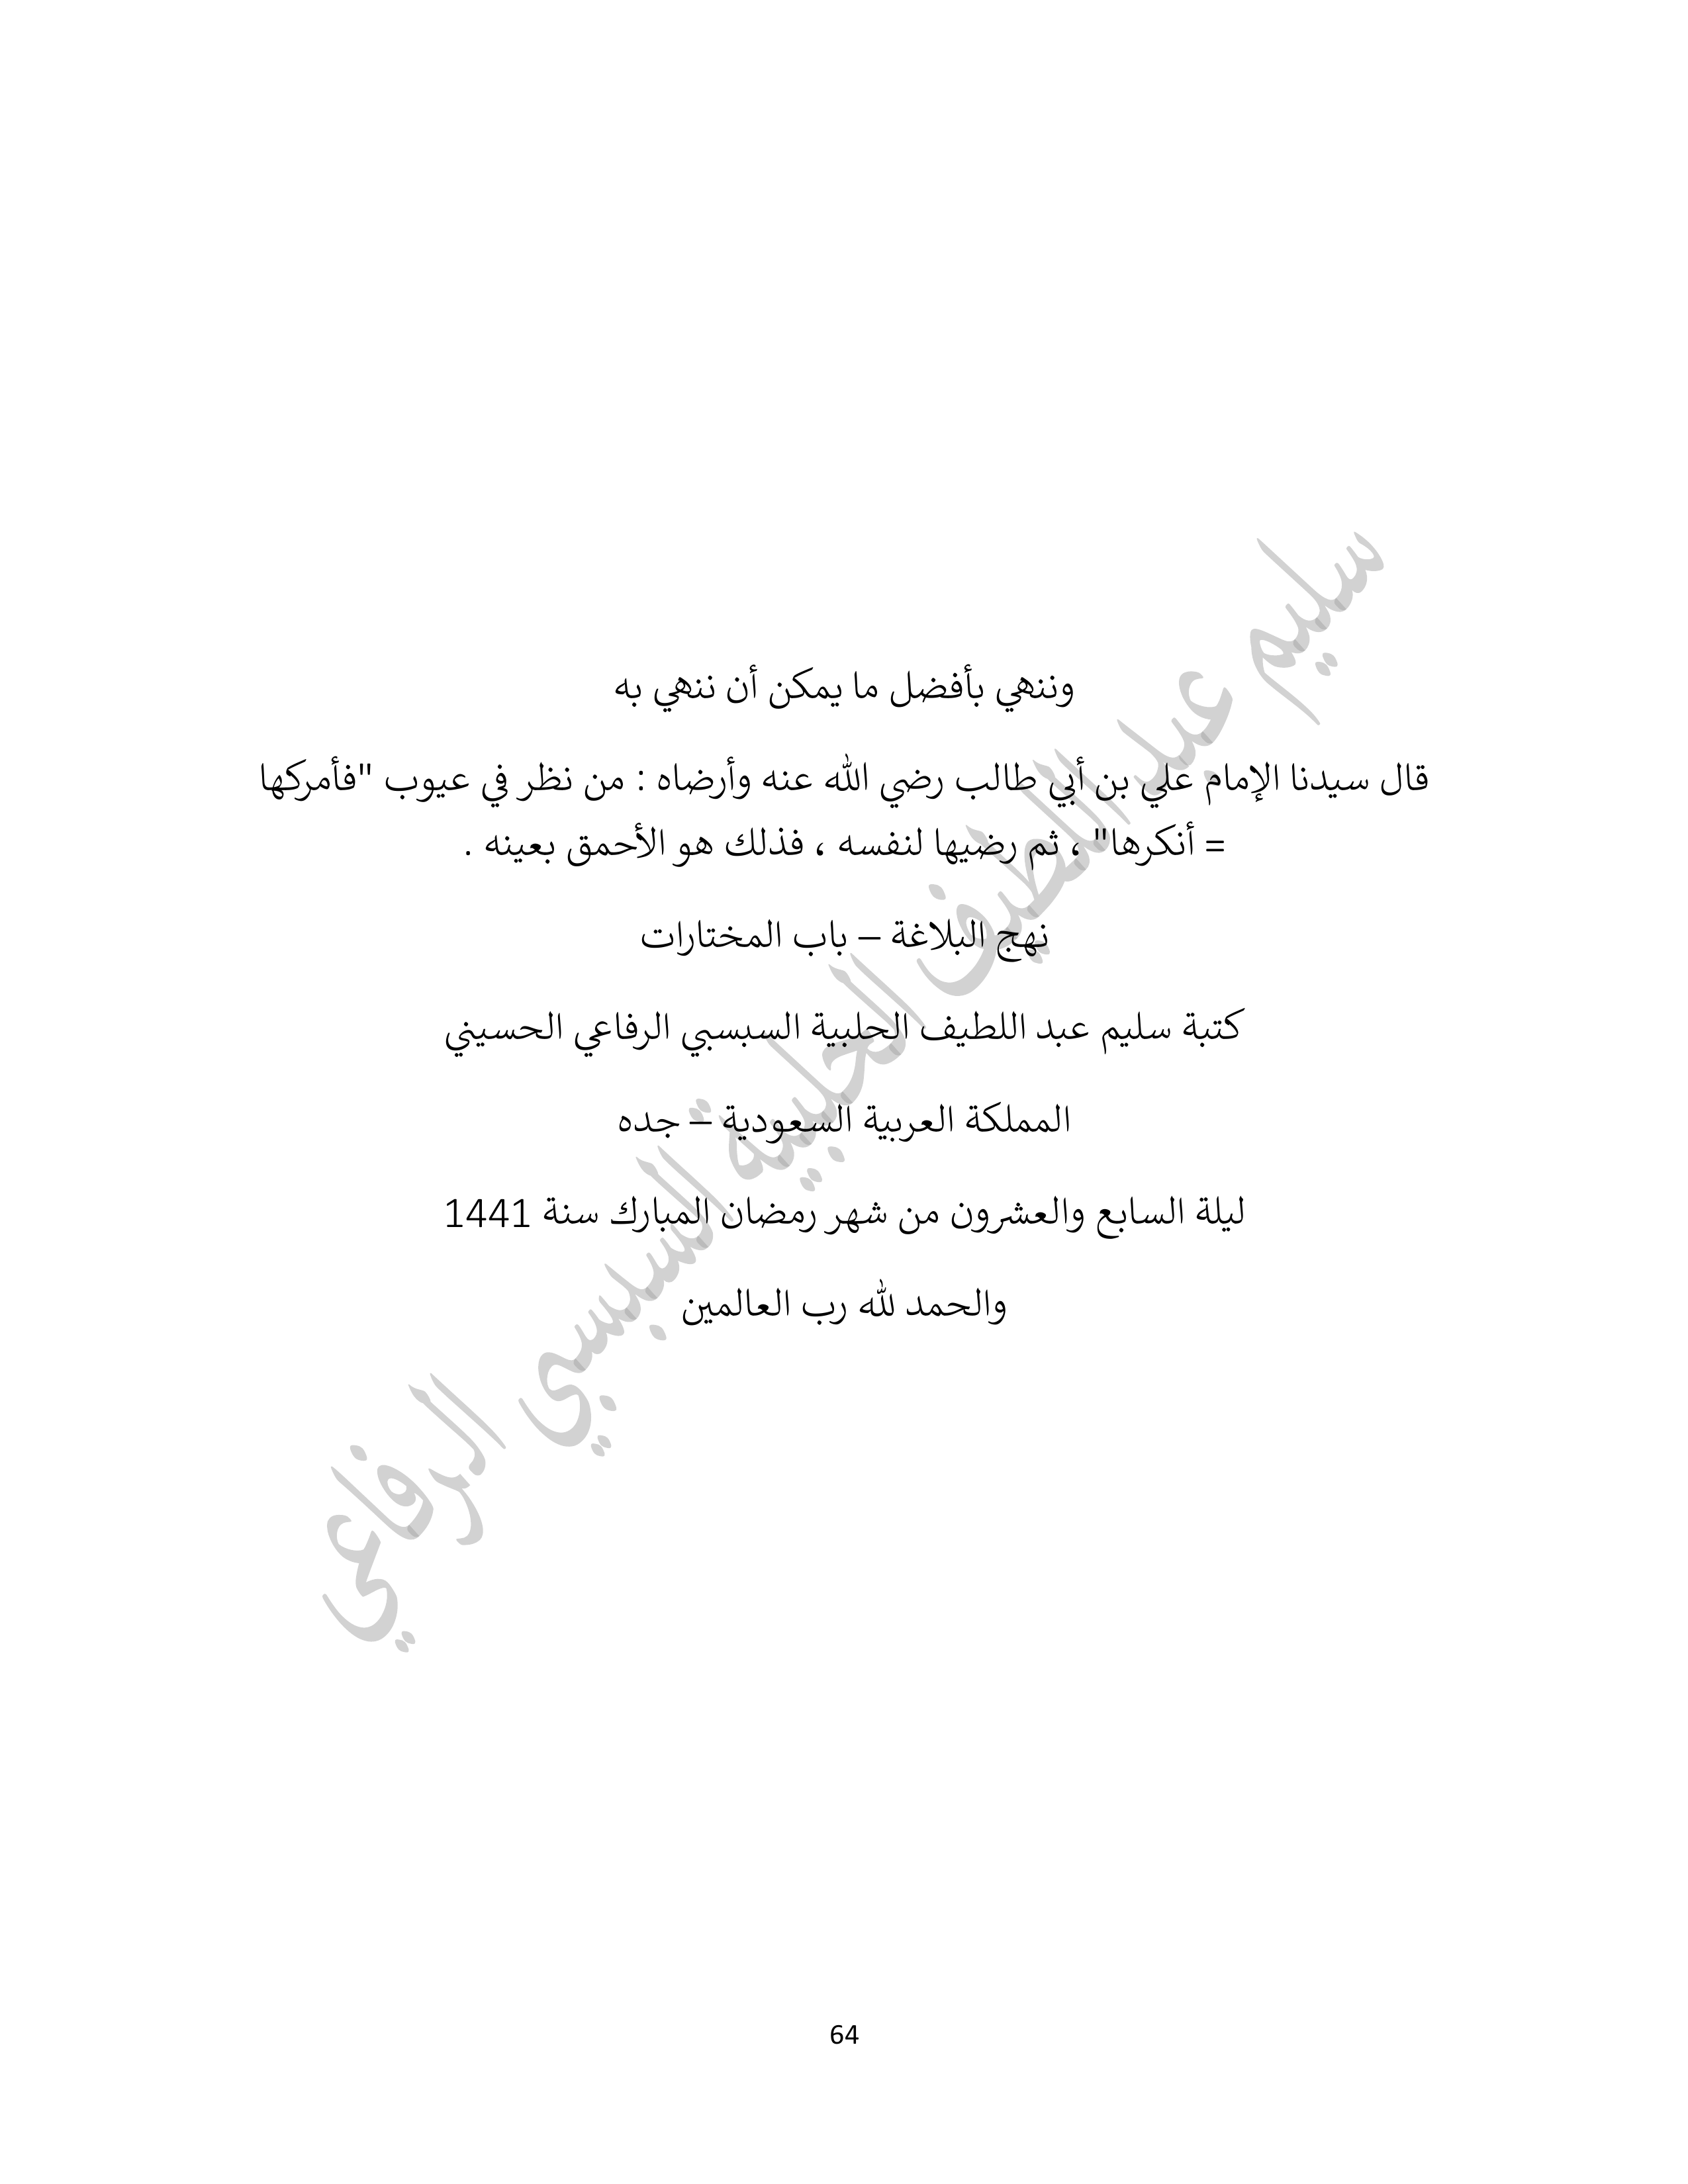 وننهي بأفضل ما يمكن أن ننهي به
قال سيدنا الإمام علي بن أبي طالب رضي الله عنه وأرضاه : من نظر في عيوب "فأمركها
= أنكرها" ، ثم رضيها لنفسه ، فذلك هو الأحمق بعينه .
نهج البلاغة – باب المختارات
كتبة سليم عبد اللطيف الحلبية السبسبي الرفاعي الحسيني
المملكة العربية السعودية – جده
ليلة السابع والعشرون من شهر رمضان المبارك سنة 1441
والحمد لله رب العالمين
سليم عبد اللطيف الحلبية السبسبي الرفاعي
64